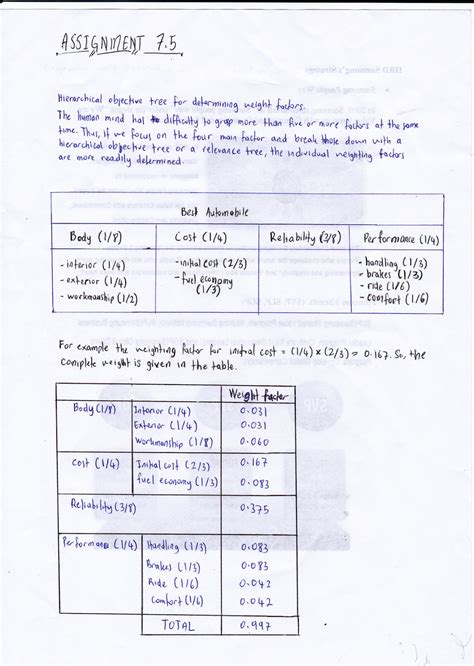 ASSIGNMENT 7.5
Hierarchical objective tree for determining weight factors.
The human mind has difficulty to grasp more than five or more factors at the same
time. Thus, if we focus on the four main factor and break those down with a
hierarchical objective tree or a relevance tree, the individual weighting factors
are more readily determined.
Best Automobile
Body (1/8) Cost (1/4) Reliability (3/8) Performance (1/4)
- interior (1/4) - initial cost (2/3) - handling (1/3)
- exterior (1/4) - fuel economy - brakes (1/3)
- workmanship (1/2) (1/3) - ride (1/6)
- comfort (1/6)
For example the weighting factor for initial cost = (1/4) x (2/3) = 0.167. So, the
complete weight is given in the table.
Weight factor
Body (1/8) Interior (1/4) 0.031
Exterior (1/4) 0.031
Workmanship (1/8) 0.060
Cost (1/4) Initial cost (2/3) 0.167
fuel economy (1/3) 0.083
Reliability (3/8) 0.375
Performance (1/4) Handling (1/3) 0.083
Brakes (1/3) 0.083
Ride (1/6) 0.042
Comfort (1/6) 0.042
TOTAL 0.997